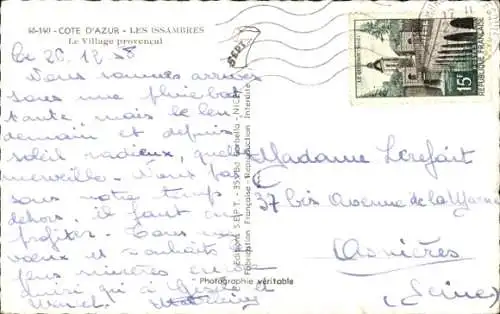 83-140 - COTE D'AZUR - LES ISSAMBRES
Le Village provençal
SEPT
Le 26.12.58
Nous sommes arrivés
sous une pluie bat
tante, mais le len
demain et depuis
soleil radieux, quelle
merveille. Nous passons
notre temps
dehors, il faut en
profiter. Tous nos
vœux et souhaits les
plus sincères
ainsi qu'à Gisèle et
Editions S.E.P.T. - NICE
Fabrication Française - Reproduction Interdite
Photographie véritable
REPUBLIQUE FRANÇAISE
15F
Madame Lerefait
37 bis Avenue de la Marne
Asnières
(Seine)